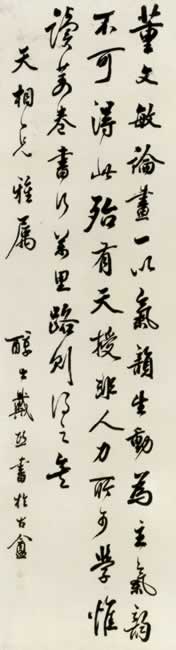 董文敏論畫一以氣韻生動為主氣韻
不可得此殆有天授非人力所可學惟
讀萬卷書行萬里路則得之矣
天相二兄雅屬
醇士戴熙書於古龕